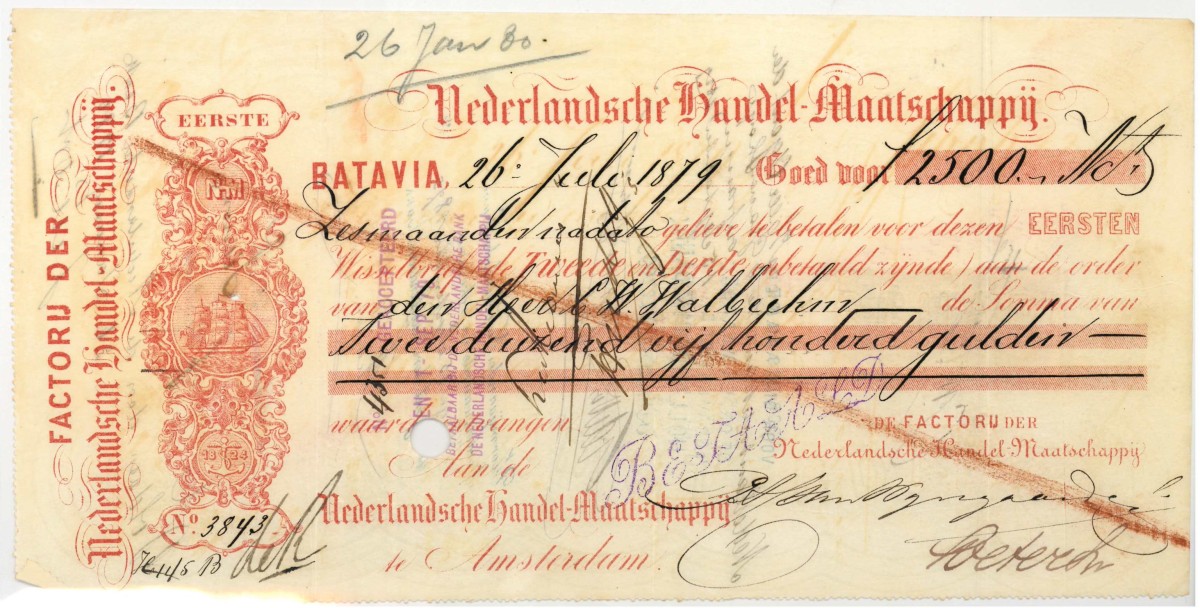 26 Jan 80.
Nederlandsche Handel-Maatschappij.
EERSTE
NHM
BATAVIA, 26 Juli 1879 Goed voor f 2500.-
Zes maanden na dato gelieve te betalen voor dezen EERSTEN
Wisselbrief (de Tweede en Derde onbetaald zijnde) aan de order
van den Heer C. W. Walbeehm de Somma van
Twee duizend vijf honderd gulden
waarde ontvangen
DE FACTORIJ DER
Nederlandsche Handel-Maatschappij
Aan de
Nederlandsche Handel-Maatschappij
te Amsterdam.
FACTORIJ DER
Nederlandsche Handel-Maatschappij.
1824
No. 3843
BETAALD
GEACCEPTEERD
DE NEDERLANDSCHE HANDEL-MAATSCHAPPIJ
4351